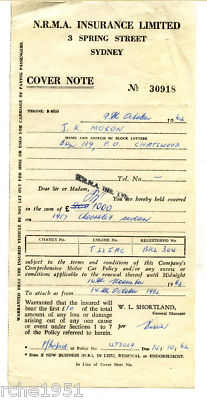 N.R.M.A. INSURANCE LIMITED
3 SPRING STREET
SYDNEY
COVER NOTE
No 30918
'PHONE: B 0533
9th October 1962
J. K. MOXON
NAME AND ADDRESS IN BLOCK LETTERS
Box 119 P.O. CHATSWOOD
Tel. No. —
Dear Sir or Madam,
You are hereby held covered
in the sum of £ 1000
Chevrolet sedan
CHASSIS No.
ENGINE No.
REGISTERED No.
subject to the terms and conditions of this Company's
Comprehensive Motor Car Policy and/or any existing
conditions applicable to the renewal thereof until Midnight
14th November 1962
To attach as from 14th October 1962
Warranted that the insured
will bear the first £10 of the
total amount of any loss or
damage arising out of any one
cause or event under Sections 1 to 7
of the Policy
W. L. SHORTLAND,
General Manager
of Policy No. 473009 Dated 14.10.62
* State if NEW BUSINESS (N.B.), IN LIEU, RENEWAL or ENDORSEMENT.
In Lieu of Cover Note No.
WARRANTED THE INSURED VEHICLE IS NOT LET OUT FOR HIRE OR USED FOR CARRIAGE OF PAYING PASSENGERS.
rche1951